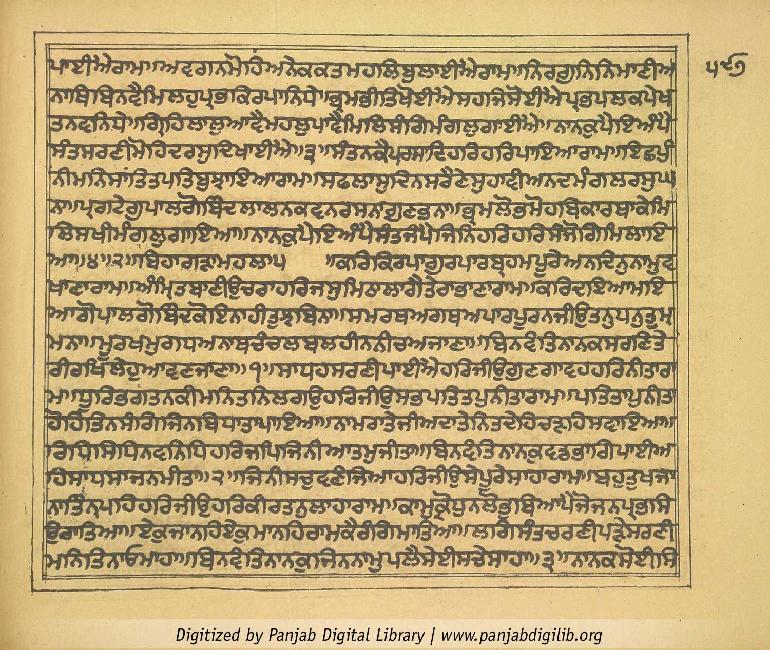 ਪਾਈਐਰਾਮ॥ਅਵਗਨਮੋਹਿਅਨੇਕਕਤਮਹਲਿਬੁਲਾਈਐਰਾਮ॥ਨਿਰਗੁਨਿਨਿਮਾਣੀਅ
ਨਾਥਿਬਿਨਵੈਮਿਲਹੁਪ੍ਰਭਕਿਰਪਾਨਿਧੇ॥ਭ੍ਰਮਭੀਤਿਖੋਈਐਸਹਜਿਸੋਈਐਪ੍ਰਭਪਲਕਪੇਖ
ਤਨਵਨਿਧੇ॥ਗ੍ਰਿਹਿਲਾਲੁਆਵੈਮਹਲੁਪਾਵੈਮਿਲਿਸੰਗਿਮੰਗਲੁਗਾਈਐ॥ਨਾਨਕੁਪਇਅੰਪੈ
ਸੰਤਸਰਣੀਮੋਹਿਦਰਸੁਦਿਖਾਈਐ॥੩॥ਸੰਤਨਕੈਪਰਸਾਦਿਹਰਿਹਰਿਪਾਇਆਰਾਮ॥ਇਛਪੁੰ
ਨੀਮਨਿਸਾਂਤਿਤਪਤਿਬੁਝਾਇਆਰਾਮ॥ਸਫਲਾਸੁਦਿਨਸਰੈਣੇਸੁਹਾਵੀਅਨਦਮੰਗਲਰਸੁਘ
ਨਾ॥ਪ੍ਰਗਟੇਗੁਪਾਲਗੋਬਿੰਦਲਾਲਨਕਵਨਰਸਨਗੁਣਭਨਾ॥ਭ੍ਰਮਲੋਭਮੋਹਬਿਕਾਰਥਾਕੇਮਿ
ਲਿਸਖੀਮੰਗਲੁਗਾਇਆ॥ਨਾਨਕੁਪਇਅੰਪੈਸੰਤਜੰਪੈਜਿਨਿਹਰਿਹਰਿਸੰਜੋਗਿਮਿਲਾਇ
ਆ॥੪॥੨॥ਬਿਹਾਗੜਾਮਹਲਾ੫ ॥ਕਰਿਕਿਰਪਾਗੁਰਪਾਰਬ੍ਰਹਮਪੂਰੇਅਨਦਿਨੁਨਾਮੁਵ
ਖਾਣਾਰਾਮ॥ਅੰਮ੍ਰਿਤਬਾਣੀਉਚਰਾਹਰਿਜਸੁਮਿਠਾਲਾਗੈਤੇਰਾਭਾਣਾਰਾਮ॥ਕਰਿਦਇਆਮਇ
ਆਗੋਪਾਲਗੋਬਿੰਦਕੋਇਨਾਹੀਤੁਝਬਿਨਾ॥ਸਮਰਥਅਗਥਅਪਾਰਪੂਰਨਜੀਉਤਨੁਧਨੁਤੁਮ੍ਹ
ਮਨਾ॥ਮੂਰਖਮੁਗਧਅਨਾਥਚੰਚਲਬਲਹੀਨਨੀਚਅਜਾਣਾ॥ਬਿਨਵੰਤਿਨਾਨਕਸਰਣਿਤੇ
ਰੀਰਖਿਲੇਹੁਆਵਣਜਾਣਾ॥੧॥ਸਾਧਹਸਰਣੀਪਾਈਐਹਰਿਜੀਉਗੁਣਗਾਵਹਹਰਿਨੀਤਾਰਾ
ਮ॥ਧੂਰਿਭਗਤਨਕੀਮਨਿਤਨਿਲਗਉਹਰਿਜੀਉਸਭਪਤਿਤਪੁਨੀਤਾਰਾਮ॥ਪਤਿਤਾਪੁਨੀਤਾ
ਹੋਹਿਤਿਨਸੰਗਿਜਿਨਬਿਧਾਤਾਪਾਇਆ॥ਨਾਮਰਾਤੇਜੀਅਦਾਤੇਨਿਤਦੇਹਿਚੜਹਿਸਵਾਇਆ॥
ਰਿਧਿਸਿਧਿਨਵਨਿਧਿਹਰਿਜਪਿਜਿਨੀਆਤਮੁਜੀਤਾ॥ਬਿਨਵੰਤਿਨਾਨਕੁਵਡਭਾਗਿਪਾਈਅ
ਹਿਸਾਧਸਾਜਨਮੀਤਾ॥੨॥ਜਿਨੀਸਚੁਵਣੰਜਿਆਹਰਿਜੀਉਸੇਪੂਰੇਸਾਹਾਰਾਮ॥ਬਹੁਤੁਖਜਾ
ਨਾਤਿੰਨਪਹਿਹਰਿਜੀਉਹਰਿਕੀਰਤਨੁਲਾਹਾਰਾਮ॥ਕਾਮੁਕ੍ਰੋਧੁਨਲੋਭੁਬਿਆਪੈਜੋਜਨਪ੍ਰਭਸਿ
ਉਰਾਤਿਆ॥ਏਕੁਜਾਨਹਿਏਕੁਮਾਨਹਿਰਾਮਕੈਰੰਗਿਮਾਤਿਆ॥ਲਗਿਸੰਤਚਰਣੀਪੜੇਸਰਣੀ
ਮਨਿਤਿਨਾਓਮਾਹਾ॥ਬਿਨਵੰਤਿਨਾਨਕੁਜਿਨਨਾਮੁਪਲੈਸੇਈਸਚੇਸਾਹਾ॥੩॥ਨਾਨਕਸੋਈਸਿ
Digitized by Panjab Digital Library | www.panjabdigilib.org